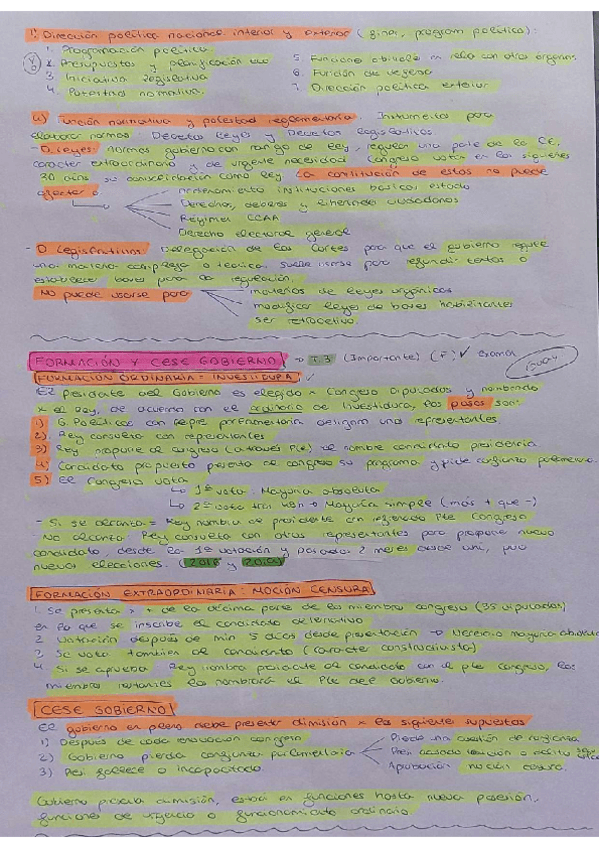 1. Dirección política nacional interior y exterior (, program política):
1. Programación política
2. Presupuestos y planificación
3. Iniciativa legislativa
4. Potestad normativa.
5. Funciones en relac con otros órganos
6. Función de urgencia
7. Dirección política exterior
Función normativa y potestad reglamentaria. Instrumentos para
elaborar normas: Decretos Leyes y Decretos legislativos.
- D. Leyes: normas gobierno con rango de Ley, regulan una parte de la CE,
carácter extraordinario y de urgente necesidad. Congreso votar en los siguientes
30 días su como Ley. La constitución de estos no puede
afectar a
ordenamiento instituciones básicas estado
Derechos, deberes y libertades ciudadanos
Régimen CCAA
Derecho electoral general
- D. Legislativos: Delegación de las Cortes para que el gobierno regule
una materia compleja o técnica. Suele usarse para refundir textos o
establecer bases para la regulación.
NO puede usarse para
materias de leyes orgánicas
modificar leyes de bases habilitantes
ser retroactivo.
FORMACIÓN Y CESE GOBIERNO → T.3 (Importante) (P) ✓ examen
FORMACIÓN ORDINARIA = INVESTIDURA ✓
El presidente del Gobierno es elegido x Congreso Diputados y nombrado
x el Rey, de acuerdo con el de investidura, los pasos son:
1) G. Políticos con repre parlamentaria designan unos representantes.
2) Rey consulta con representantes.
3) Rey propone al congreso (a través Pte) el nombre candidato presidencia
4) Candidato propuesto presenta al congreso su programa y pide confianza parlamento.
5) El Congreso vota
↳ 1ª vota: Mayoría absoluta
↳ 2ª vota tras 48h → Mayoría simple (más + que -)
- Si se alcanza = Rey nombra al presidente con refrendo Pte Congreso
- No alcanza: Rey consulta con otros representantes para propone nuevo
candidato, desde la 1ª votación y pasados 2 meses desde ahí,
nuevas elecciones. (2016 y 2019)
FORMACIÓN EXTRAORDINARIA: MOCIÓN CENSURA
1. Se presenta x + de la décima parte de los miembros congreso (35 diputados)
en la que se inscribe el candidato alternativo
2 Votación después de min 5 días desde presentación → Necesario mayoría absoluta
3 Se vota también al candidato (carácter constructivista)
4. Si se aprueba Rey nombra presidente al candidato con el pte congreso, los
miembros restantes los nombrará el Pte del Gobierno.
CESE GOBIERNO
El gobierno en pleno debe presentar dimisión x los siguientes supuestos
1) Después de cada renovación congreso
2) Gobierno pierda confianza parlamentaria
3) Pres fallece o incapacitado.
Pierde una cuestión de confianza
Pres acusado traición o delito
Aprobación moción censura.
Gobierno presenta dimisión, estará en funciones hasta nueva posesión,
funciones de urgencia o funcionamiento ordinario.